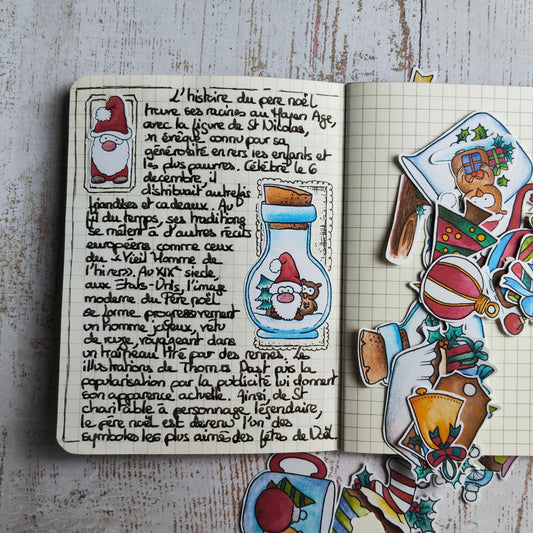 L'histoire du père noël
trouve ses racines au Moyen Age,
avec la figure de St Nicolas,
un évêque connu pour sa
générosité envers les enfants et
les plus pauvres. Célébré le 6
décembre, il
distribuait autrefois
friandises et cadeaux. Au
fil du temps, ses traditions
se mêlent à d'autres récits
européens comme ceux
du « Vieil Homme de
l'hiver». Au XIXe siecle,
aux Etats-Unis, l'image
moderne du Père noël
se forme progressivement
un homme joyeux, vetu
de rouge, voyageant dans
un traîneau tiré par des rennes. Les
illustrations de Thomas Nast puis la
popularisation par la publicité lui donnent
son apparence actuelle. Ainsi, de St
charitable à personnage légendaire,
le père noël est devenu l'un des
symboles les plus aimés des fêtes de Noël.